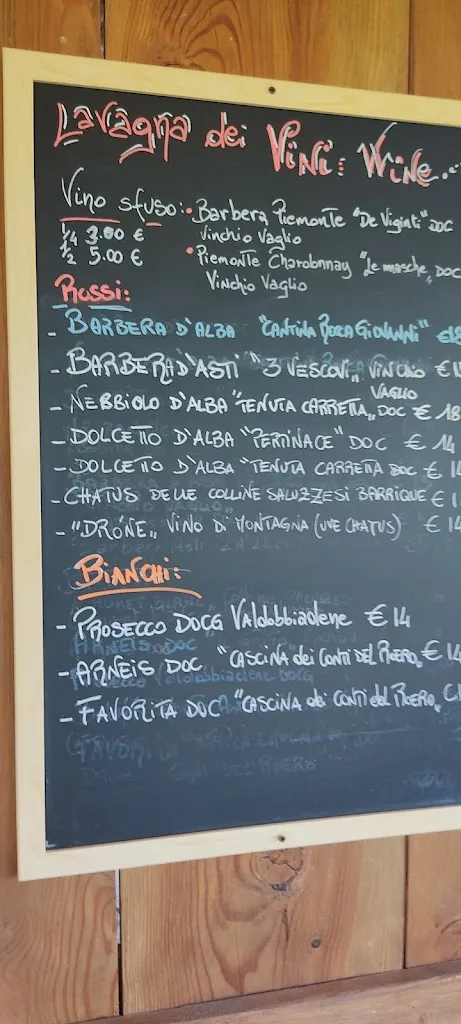 Lavagna dei Vini: Wine...
Vino sfuso: • Barbera Piemonte "De Viginti" DOC
Vinchio Vaglio
1/4 3.00 €
1/2 5.00 €
• Piemonte Charobnnay "Le masche„ DOC
Vinchio Vaglio
Rossi:
- BARBERA D'ALBA "CANTINA ROCCA GIOVANNI" €18
- BARBERA D'ASTI "3 VESCOVI„ VINCHIO €
VAGLIO
- NEBBIOLO D'ALBA "TENUTA CARRETTA„ DOC € 18
- DOLCETTO D'ALBA "PERTINACE" DOC € 14
- DOLCETTO D'ALBA "TENUTA CARRETTA DOC € 14
- CHATUS DELLE COLLINE SALUZZESI BARRIQUE €
- "DRÔNE„ VINO DI MONTAGNA (UVE CHATUS) € 14
BIANCHI:
- PROSECCO DOCG Valdobbiadene € 14
- ARNEIS DOC "CASCINA dei CONTI DEL ROERO„ € 14
- FAVORITA DOC "CASCINA dei CONTI del ROERO„ €